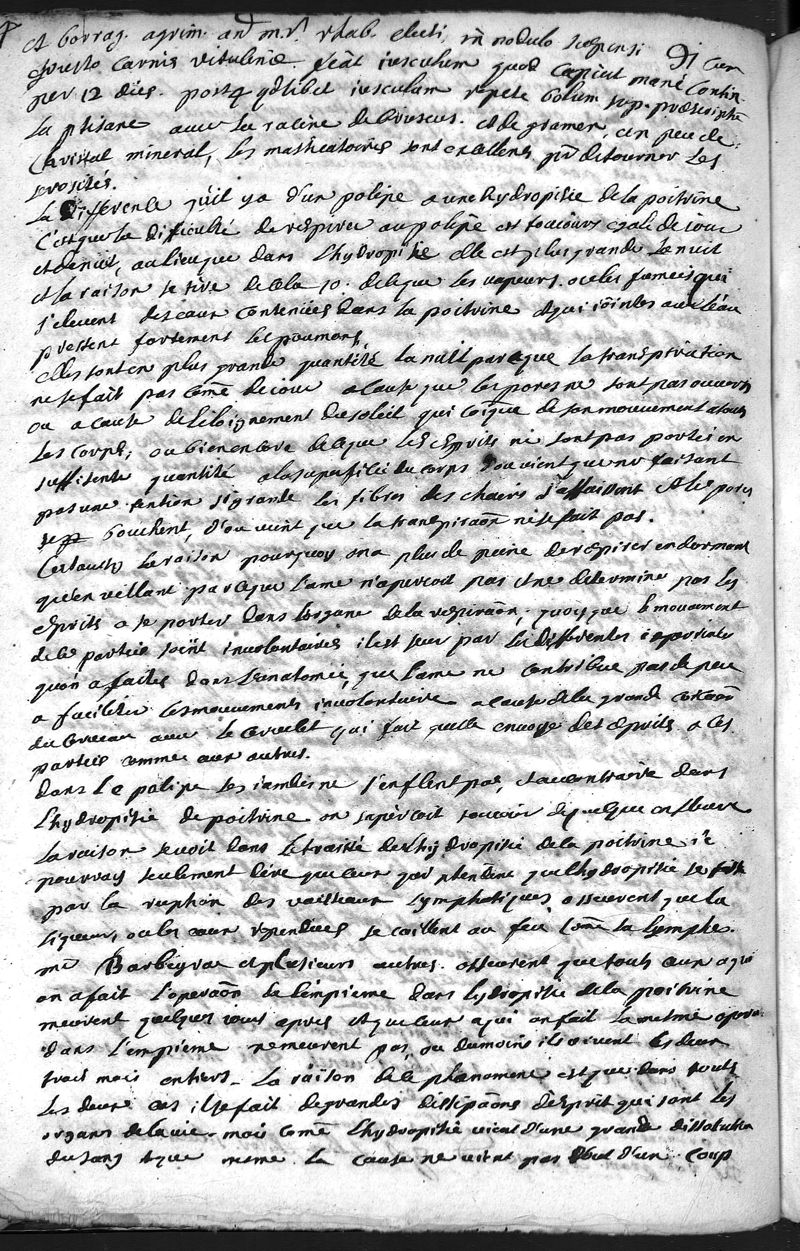 et borrag. agrim. an͠a m.j. rhab. electi, in nodulo suspensi Di cum
frusto carnis vitulinæ. fiat iusculum quod capiat mane contin.
per 12 dies. postq qdlibet iusculum repete bolum sup. præscriptū
la ptisane avec la racine de bruscus. et de gramen, un peu de
Christal mineral, les masticatoires sont excellents pr detourner les
serosités.
La difference qu'il y a d'un polipe a une hydropisie de la poitrine
C'est que la difficulté de respirer au polipe est toujours egale de jour
et de nuit, au lieu que dans l'hydropisie elle est plus grande la nuit
et la raison se tire de cela 1o. de ce que les vapeurs. ou les fumeés qui
s'elevent des eaux contenües dans la poitrine et qui jointes aux eau
pressent fortement les poumons,
elles sont en plus grande quantité la nuit parceque la transpiration
ne se fait pas come de jour a cause que les pores ne sont pas ouverts
ou a cause de l'eloignement du soleil qui coique de son mouvement a tous
les corps, ou bien encore de ce que les esprits ne sont pas portés en
suffisente quantité a la superficie du corps d'ou vient que ne faisant
pas une tention si grande les fibres des chairs s'affaissent et les pores
se bouchent, d'ou vient que la transpiraon ne se fait pas.
C'est aussy la raison pourquoy on a plus de peine de respirer en dormant
qu'en veillant parceque l'ame n'apercoit pas et ne determine pas les
esprits a se porter dans l'organe de la respiraon, quoy que le mouvement
de ces parties soint involontaires il est seur par les differentes experiences
quon a faites dans l'anatomie, que l'ame ne contribue pas de peu
a faciliter les mouvements involontaire a cause de la grande
du cerveau avec le cervelet qui fait qu'elle envoye des esprits a ces
parties comme aux autres.
Dans le polipe les jambes ne s'enflent pas, et au contraire dans
l'hydropisie de poitrine on s'apercoit souvent de quelque enfleure
La raison se voit dans le traitté de l'hydropisie de la poitrine je
pourray seulement dire que ceux qui ptendent que l'hydropisie se fait
par la ruption des vaisseaux lymphatiques asseurent que la
liqueur, ou les eaux repandües se caillent au feu come la lymphe.
mr Barbeyrac et plusieurs autres. asseurent que touts ceux a qui
on a fait l'operaon de l'empieme dans lydropisie de la poitrine
meurent quelques jours apres et que ceux a qui on fait la mesme opera.
dans l'empieme ne meurent pas, ou du moins ils vivent les deux
trois mois entiers. La raison de ce phænomene est que dans touts
les deux cas il se fait de grandes dissipaons d'esprit qui sont les
organs de la vie. mais come l'hydropisie vient d'une grande dissolution
du sang et que mesme la cause ne vient pas tout d'un coup